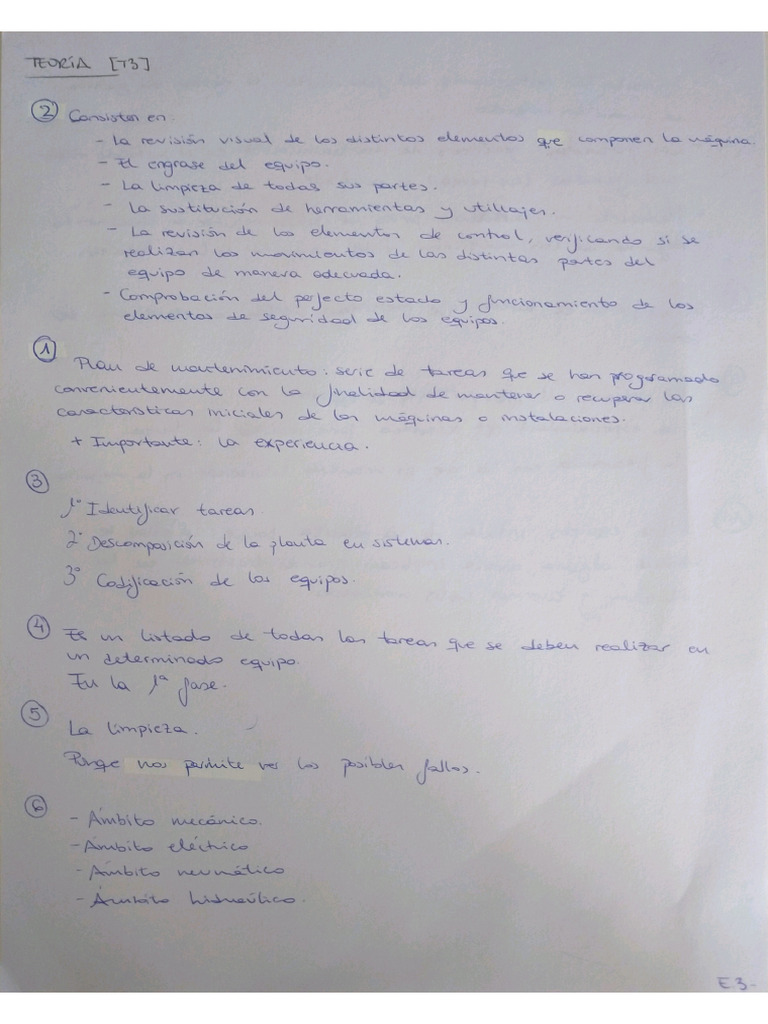 TEORÍA [T3]
② Consisten en:
- La revisión visual de los distintos elementos que componen la máquina.
- El engrase del equipo.
- La limpieza de todas sus partes.
- La sustitución de herramientas y utillajes.
- La revisión de los elementos de control, verificando si se
realizan los movimientos de las distintas partes del
equipo de manera adecuada.
- Comprobación del perfecto estado y funcionamiento de los
elementos de seguridad de los equipos.
① Plan de mantenimiento: serie de tareas que se han programado
convenientemente con la finalidad de mantener o recuperar las
características iniciales de las máquinas o instalaciones.
+ Importante: la experiencia.
③
1º Identificar tareas.
2º Descomposición de la planta en sistemas.
3º Codificación de los equipos.
④ Es un listado de todas las tareas que se deben realizar en
un determinado equipo.
En la 1ª fase.
⑤ La limpieza.
Porque nos permite ver los posibles fallos.
⑥
- Ámbito mecánico.
- Ámbito eléctrico
- Ámbito neumático
- Ámbito hidraúlico.
E.3.